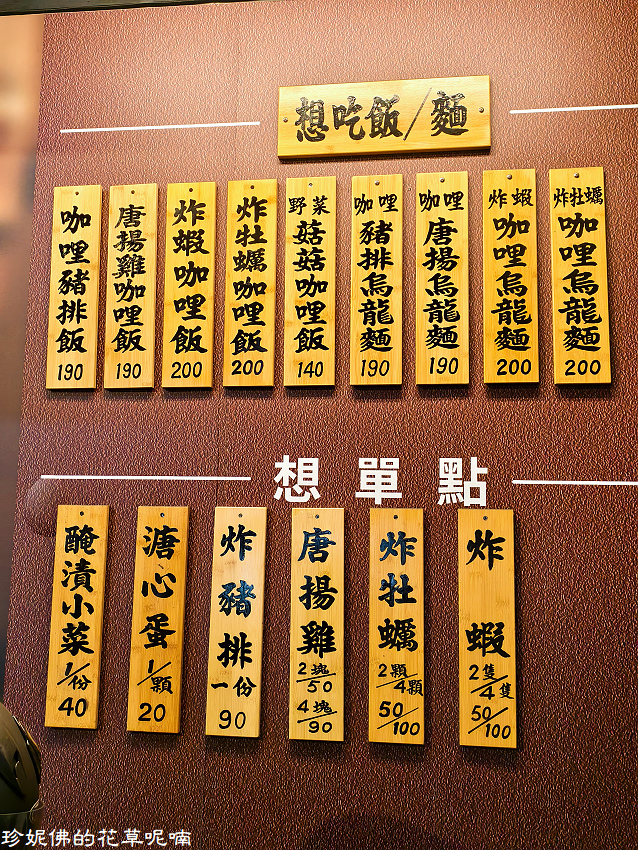 想吃飯/麵
咖哩豬排飯
190
唐揚雞咖哩飯
190
炸蝦咖哩飯
200
炸牡蠣咖哩飯
200
野菜
菇菇咖哩飯
140
咖哩
豬排烏龍麵
190
咖哩
唐揚烏龍麵
190
炸蝦
咖哩烏龍麵
200
炸牡蠣
咖哩烏龍麵
200
想單點
醃漬小菜
1/份
40
溏心蛋
1/顆
20
炸豬排
一份
90
唐揚雞
2塊/50
4塊/90
炸牡蠣
2顆/4顆
50/100
炸蝦
2隻/4隻
50/100
珍妮佛的花草呢喃